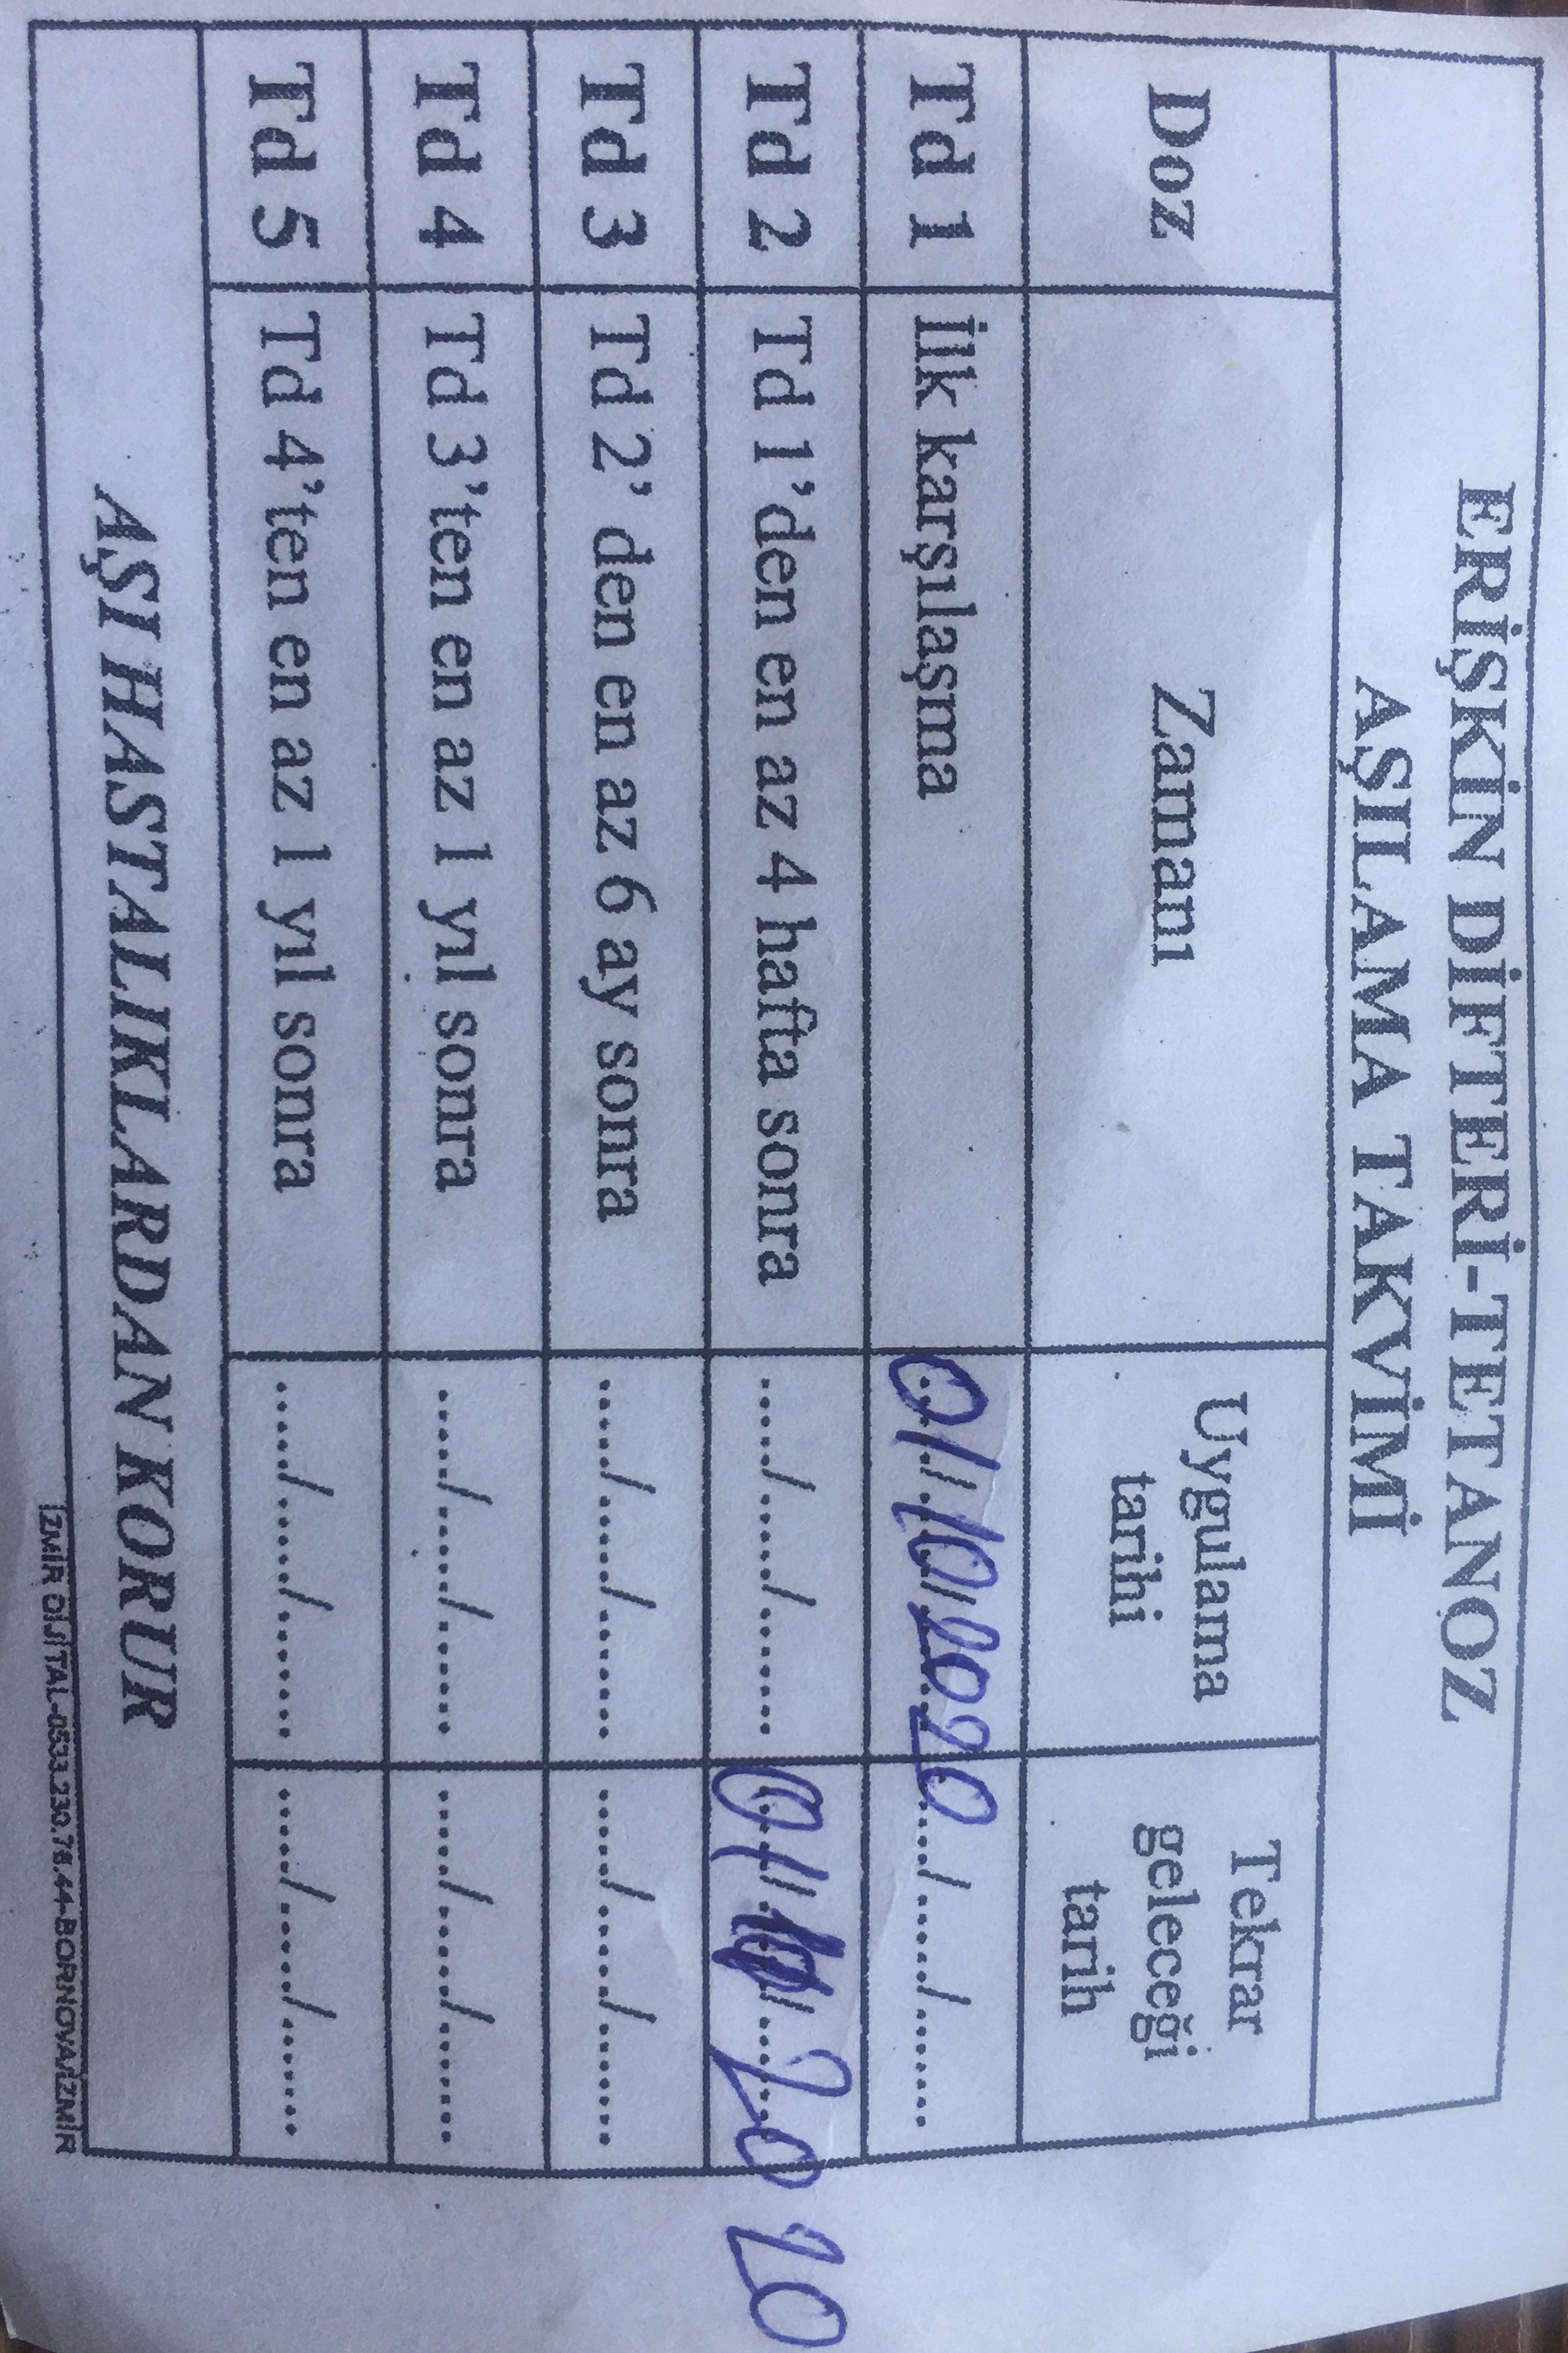 ERİŞKİN DİFTERİ-TETANOZ
AŞILAMA TAKVİMİ
Doz
Zamanı
Uygulama
tarihi
Tekrar
geleceği
tarih
Td 1 İlk karşılaşma 01/10/2020 ...../...../.......
Td 2 Td 1’den en az 4 hafta sonra ...../...../....... 01/11/2020
Td 3 Td 2’ den en az 6 ay sonra ...../...../....... ...../...../.......
Td 4 Td 3’ten en az 1 yıl sonra ...../...../....... ...../...../.......
Td 5 Td 4’ten en az 1 yıl sonra ...../...../....... ...../...../.......
AŞI HASTALIKLARDAN KORUR
İZMİR DİJİTAL-0533.230.76.44-BORNOVA/İZMİR